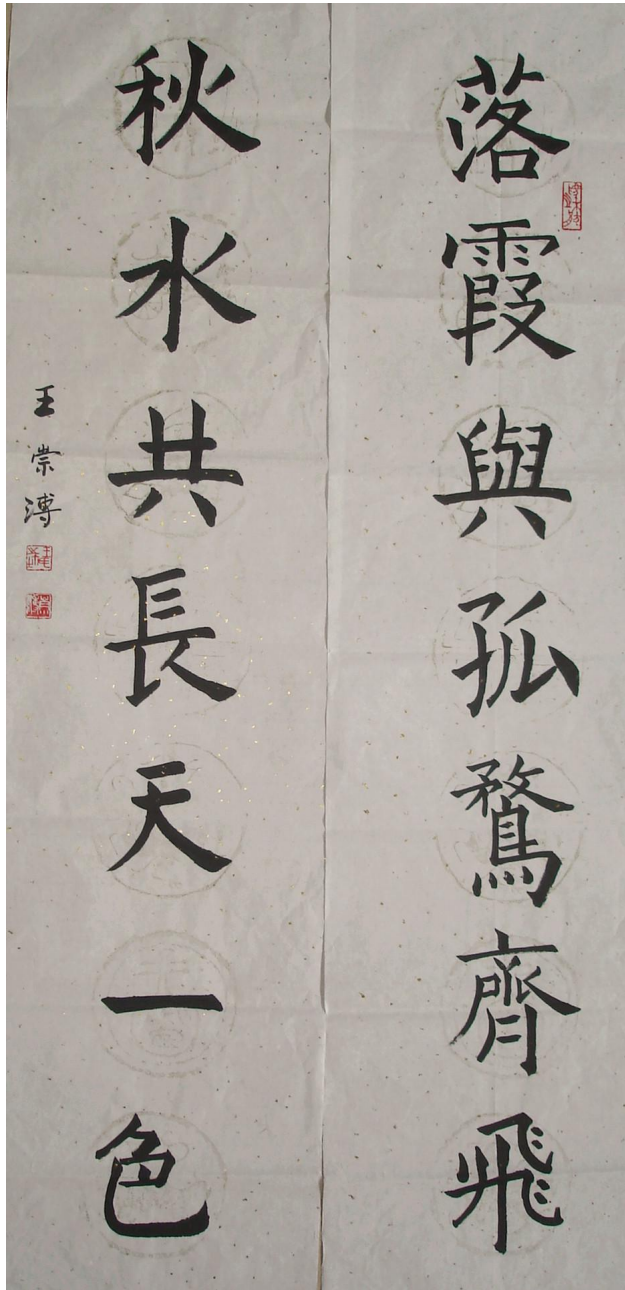 落霞與孤騖齊飛
秋水共長天一色
王崇溥